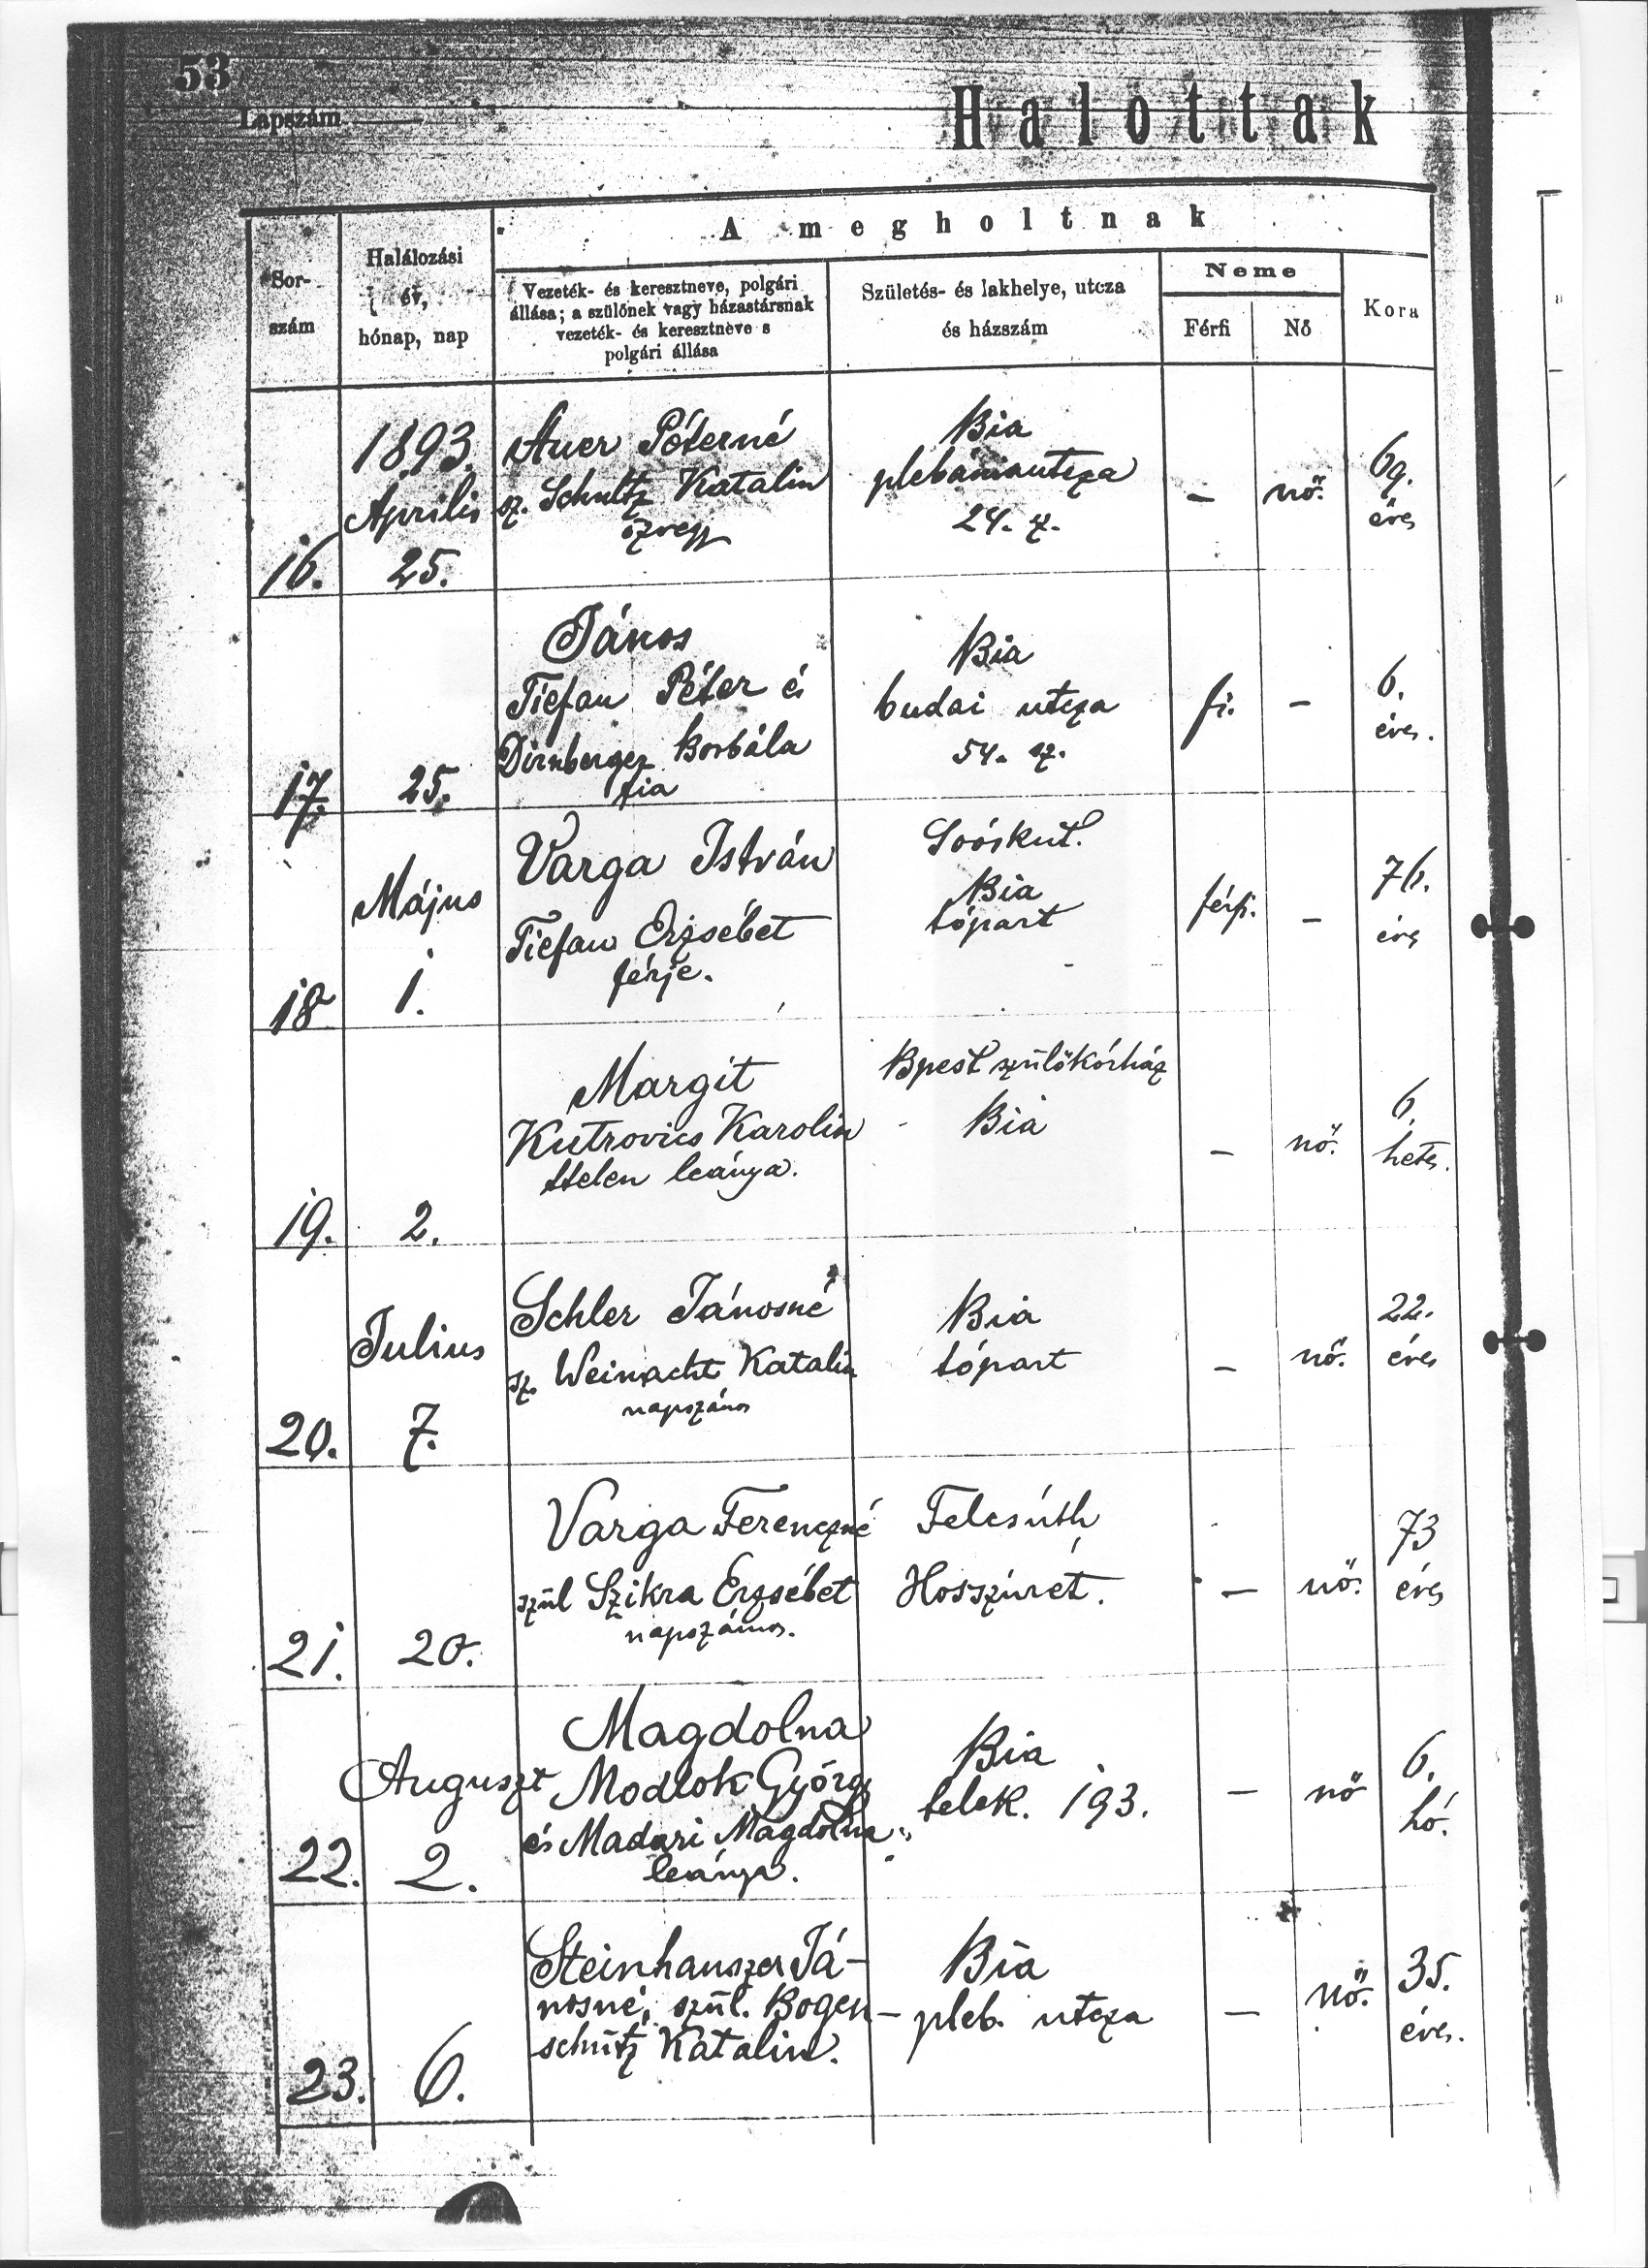 53
Lapszám
Halottak
A megholtnak
Sor-
szám
Halálozási
év,
hónap, nap
Vezeték- és keresztneve, polgári
állása; a szülőnek vagy házastársnak
vezeték- és keresztneve s
polgári állása
Születés- és lakhelye, utcza
és házszám
Neme
Férfi
Nő
Kora
16.
1893.
Április
25.
Auer Péterné
sz. Schultz Katalin
özvegy
Bia
plebániautcza
24. sz.
–
nő.
69.
éves
17.
25.
János
Tiefau Péter és
Dirnberger Borbála
fia
Bia
budai utcza
54. sz.
fi.
–
6.
éves.
18
Május
1.
Varga István
Tiefau Erzsébet
férje.
Soóskut.
Bia
tópart
férfi.
–
76.
éves
19.
2.
Margit
Kutrovics Karolin
ttelen leánya.
Bpest szülőkórház
Bia
–
nő.
6.
hetes.
20.
Julius
7.
Schler Jánosné
sz. Weinacht Katalin
napszámos
Bia
tópart
–
nő.
22.
éves
21.
20.
Varga Ferenczné
szül Szikra Erzsébet
napszámos.
Felcsúth
Hosszúrét.
–
nő.
73
éves
22.
Auguszt
2.
Magdolna
Modlok György
és Madari Magdolna
leánya.
Bia
telek. 193.
–
nő
6.
hó.
23.
6.
Steinhauszer Já-
nosné, szül. Bogen-
schütz Katalin.
Bia
pleb. utcza
–
nő.
35.
éves.